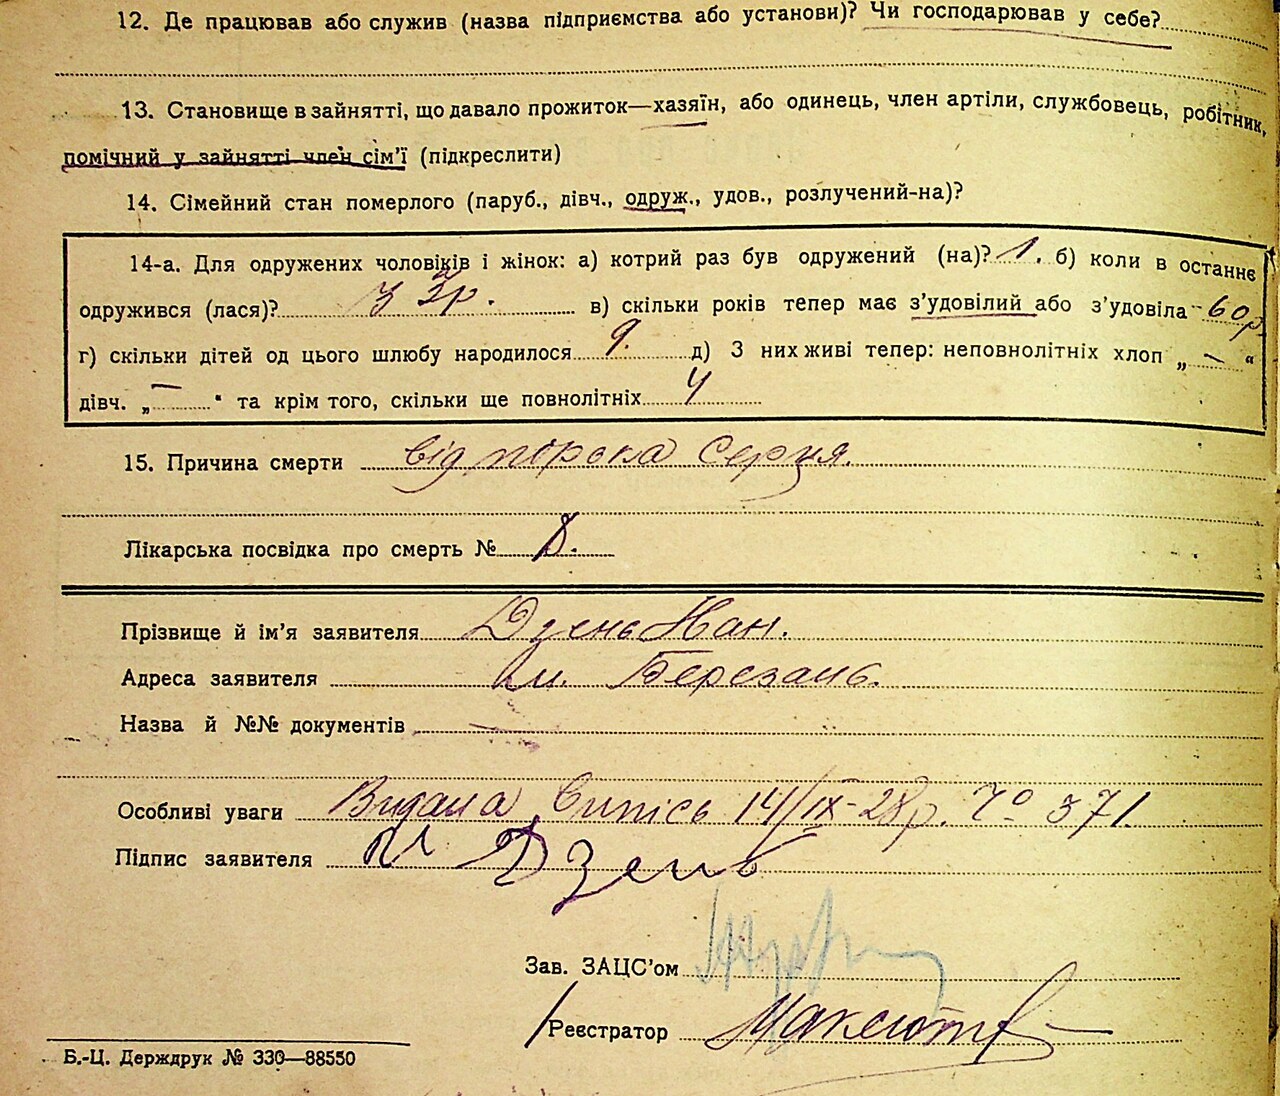 12. Де працював або служив (назва підприємства або установи)? Чи господарював у себе?
13. Становище в зайнятті, що давало прожиток—хазяїн, або одинець, член артіли, службовець, робітник,
помічний у зайнятті член сім'ї (підкреслити)
14. Сімейний стан померлого (паруб., дівч., одруж., удов., розлучений-на)?
14-а. Для одружених чоловіків і жінок: а) котрий раз був одружений (на)? 1. б) коли в останнє
одружився (лася)? в) скільки років тепер має з'удовілий або з'удовіла - 60 р.
г) скільки дітей од цього шлюбу народилося 9. д) З них живі тепер: неповнолітніх хлоп „ — “
дівч. „ — “ та крім того, скільки ще повнолітніх 4
15. Причина смерти від порока серця.
Лікарська посвідка про смерть №
Прізвище й ім'я заявителя Дзень Иан.
Адреса заявителя м. Березань.
Назва й №№ документів —
Особливі уваги Видала Випісь 14/IX-28 р. № 371.
Підпис заявителя Дзень
Зав. ЗАЦС'ом
Реєстратор
Б.-Ц. Держдрук № 330—88550